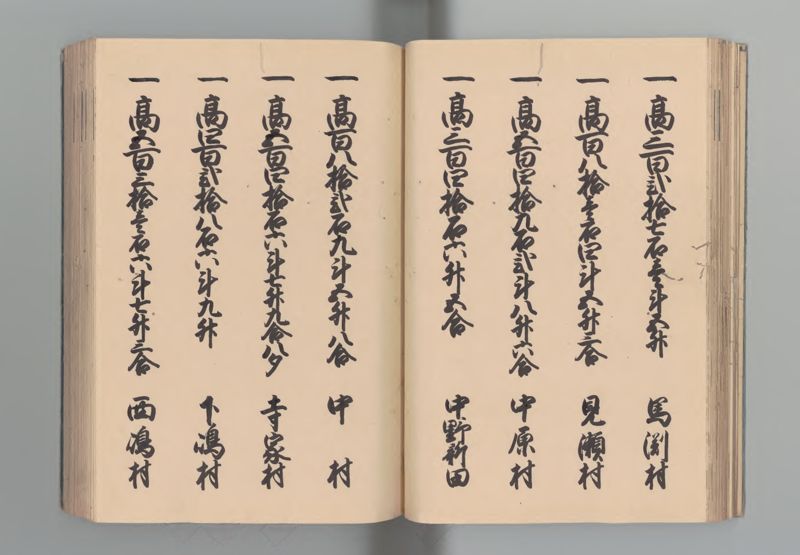 一 高三百弐拾七石壱斗五升 馬渕村
一 高百八拾壱石四斗五升三合 見瀬村
一 高五百四拾九石弐斗八升六合 中原村
一 高三百四拾石六升五合 中野新田
一 高百八拾弐石九斗五升八合 中村
一 高五百四拾石六斗七升九合八夕 寺家村
一 高四百弐拾八石六斗九升 下嶋村
一 高五百三拾壱石六斗七升三合 西嶋村